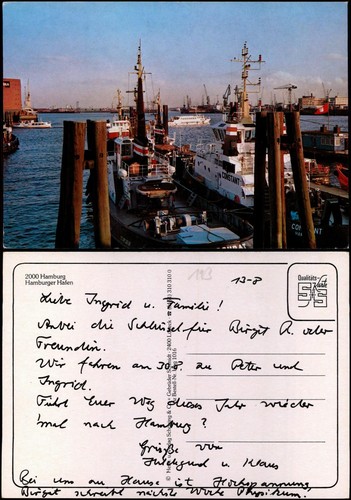 CONSTANT
2000 Hamburg
Hamburger Hafen
13-8
Qualitäts
Liebe Ingrid u. Familie!
Anbei die Schlüssel für Birgit R. oder
Freundin.
Wir fahren am 30.8. zu Peter und
Ingrid.
Führt Euer Weg dieses Jahr wieder
'mal nach Hamburg?
Grüße von
Hildegund u. Klaus
Bei uns zu Hause ist Hochspannung,
Birgit schreibt nächste Woche Physikum.